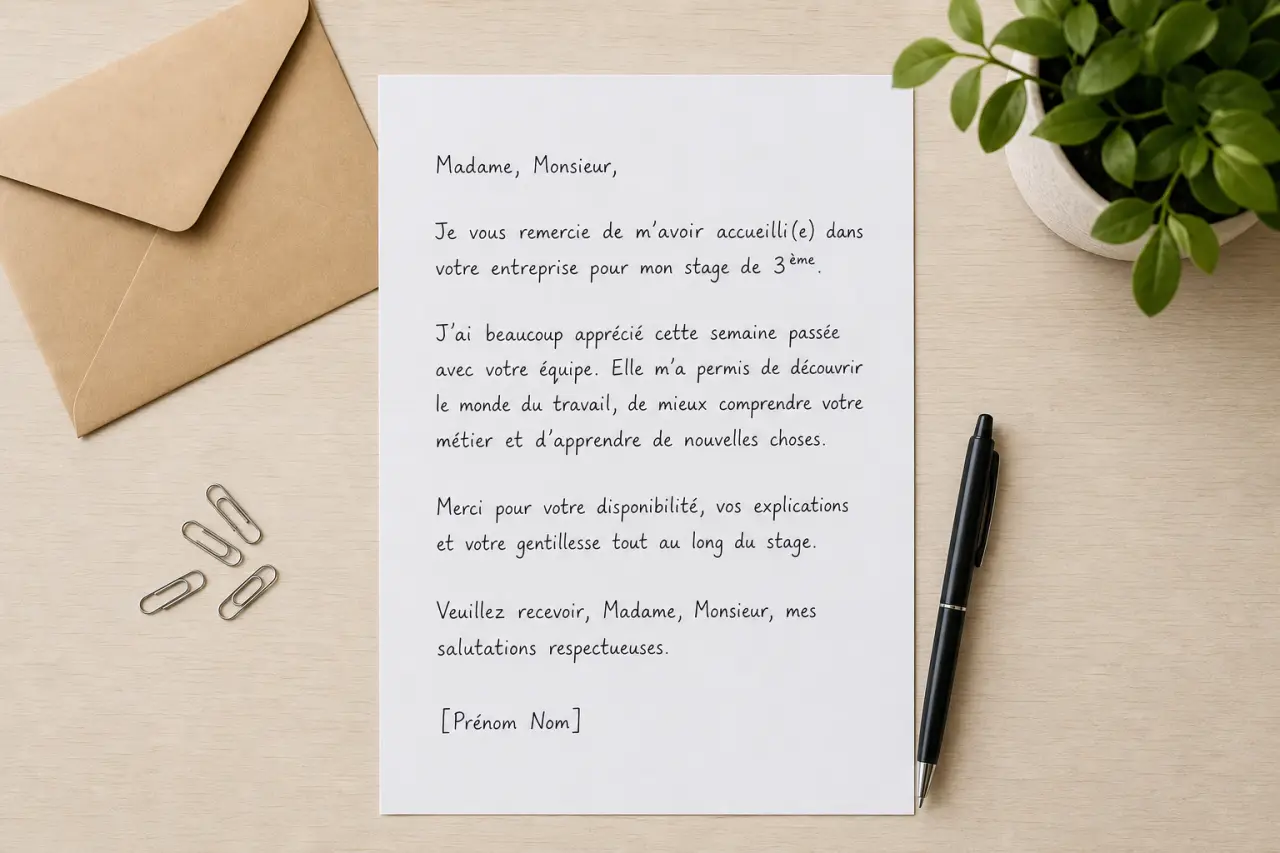 Madame, Monsieur,
Je vous remercie de m'avoir accueilli(e) dans
votre entreprise pour mon stage de 3ème.
J'ai beaucoup apprécié cette semaine passée
avec votre équipe. Elle m'a permis de découvrir
le monde du travail, de mieux comprendre votre
métier et d'apprendre de nouvelles choses.
Merci pour votre disponibilité, vos explications
et votre gentillesse tout au long du stage.
Veuillez recevoir, Madame, Monsieur, mes
salutations respectueuses.
[Prénom Nom]